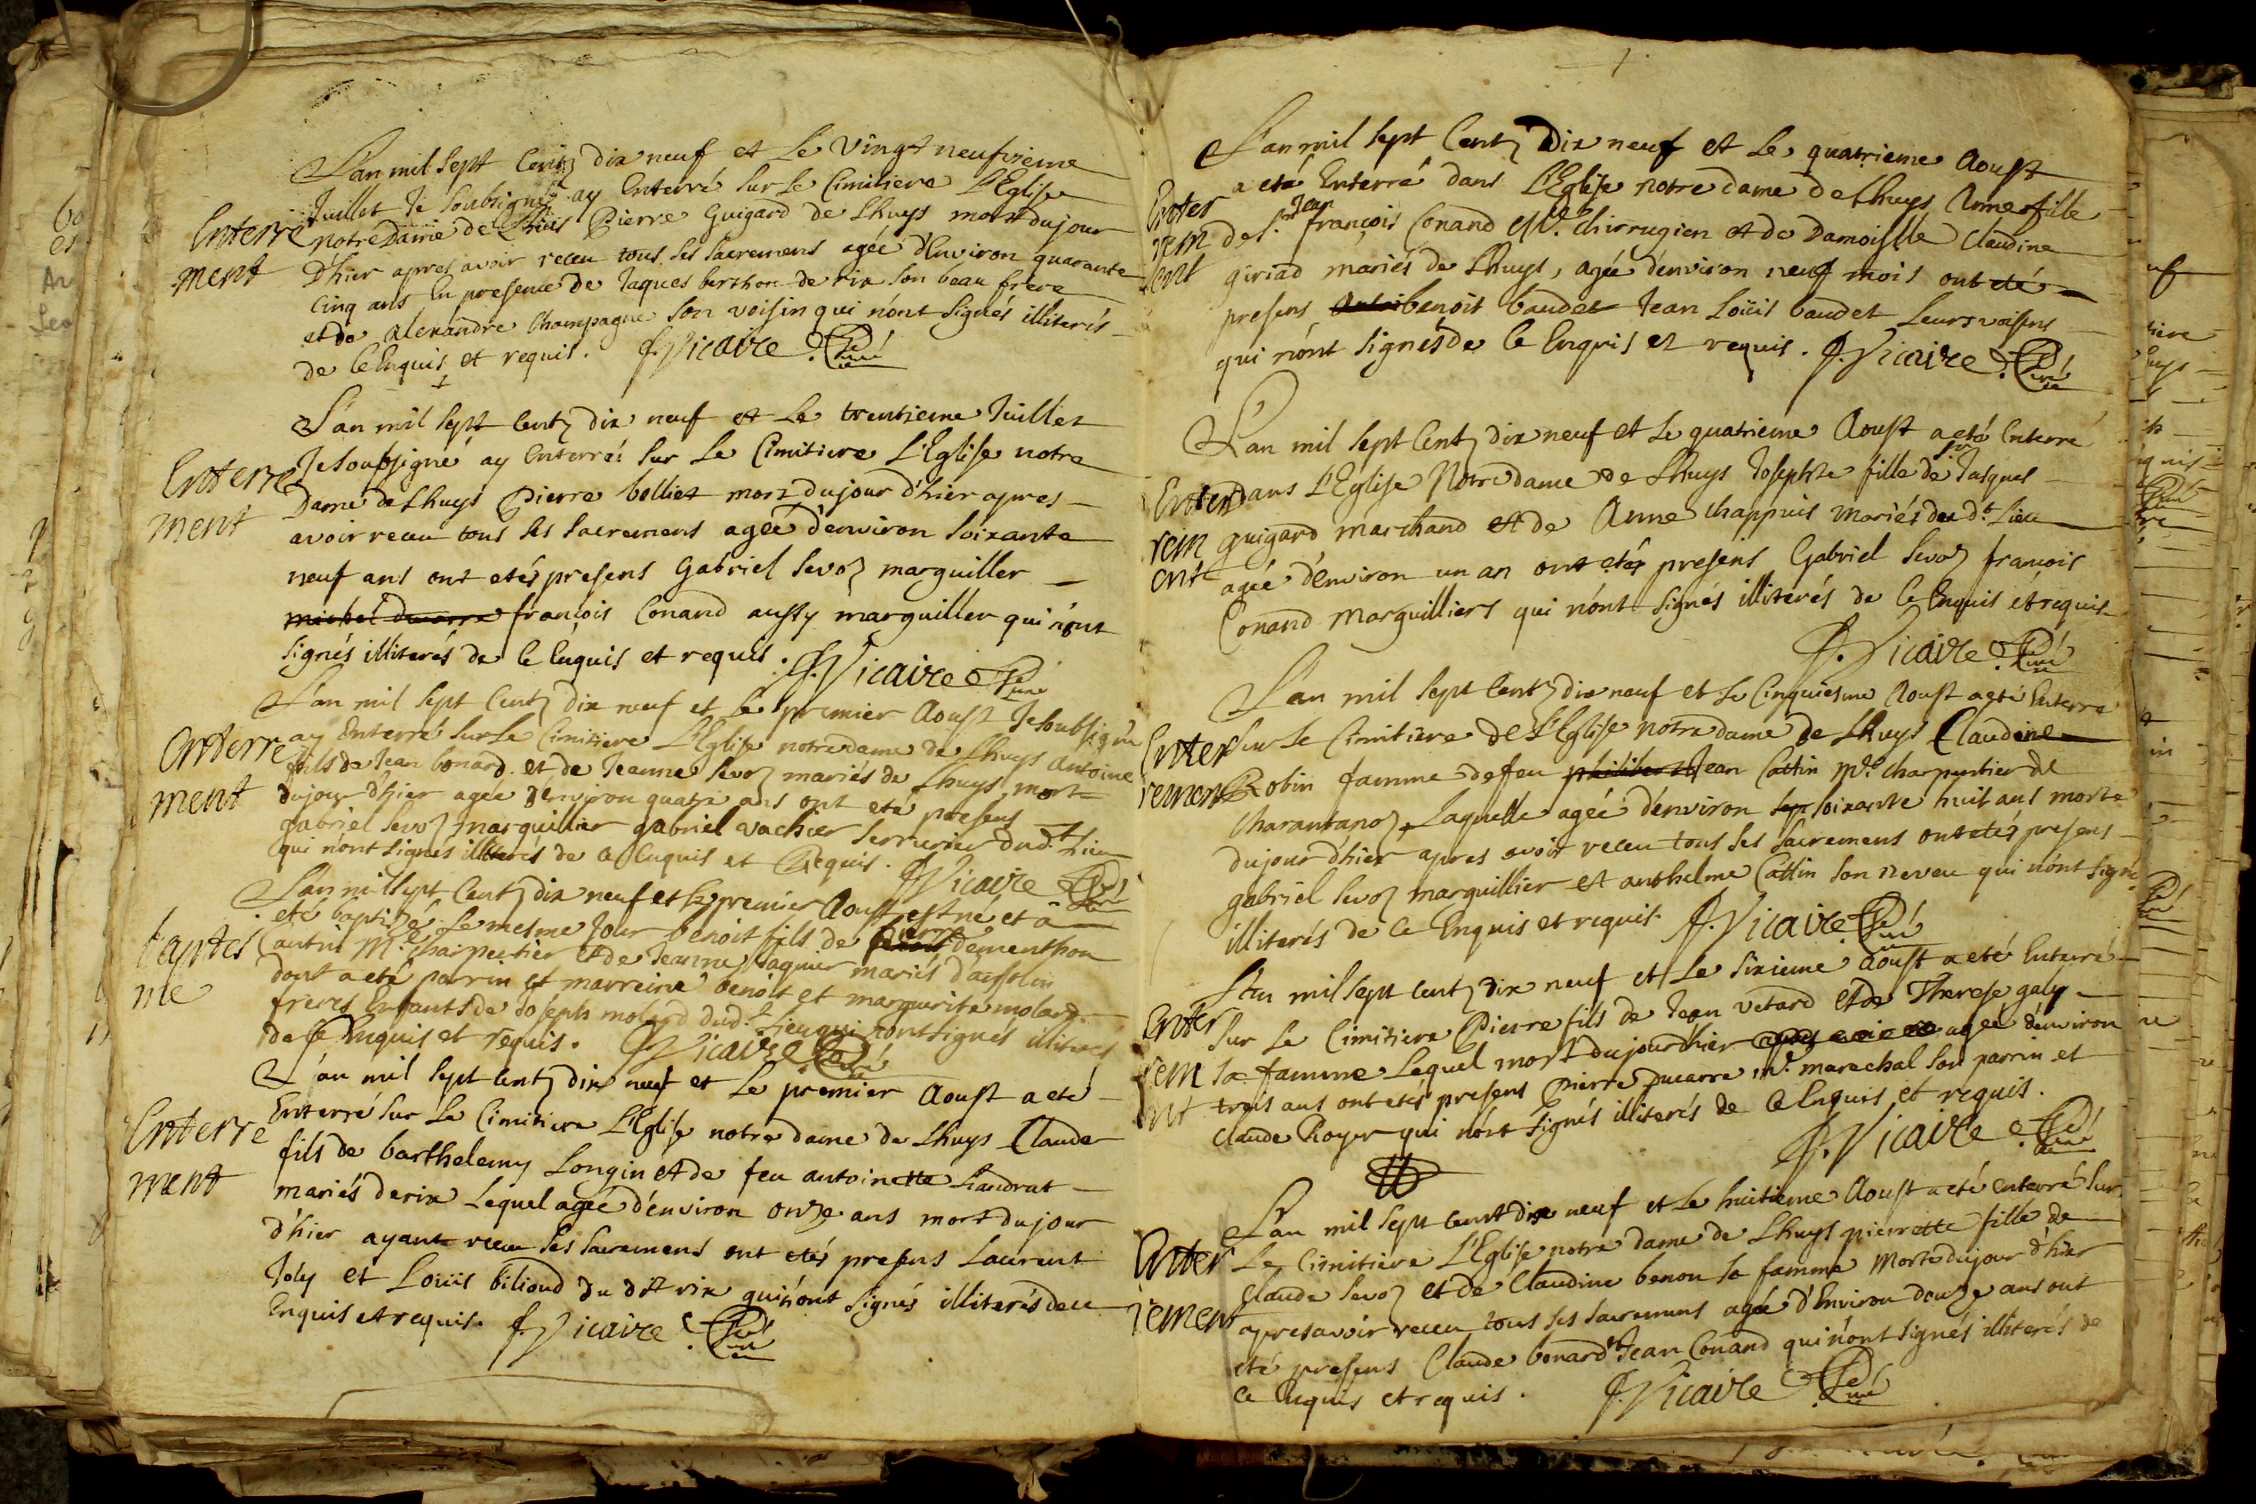 L'an mil sept Centz dix neuf et Le Vingt neufvieme
Enterre Juillet Je Soubsigné ay Enterré Sur Le Cimitiere L'Eglise
notre Dame de Lhuis Pierre Guigard de Lhuys mort du jour
ment D'hier apres avoir receu tous Ses Sacremens agée d'Environ quarante
Cinq ans En presence de Jaques berthon de rix Son beau frere
et de alexandre Champagne Son voisin qui n'ont Signés illiterés
de Ce Enquis et requis. J. Vicaire Curé
L'an mil Sept Centz dix neuf et Le trentieme Juillet
Enterre Je Soubsigné ay Enterré Sur Le Cimitiere L'Eglise notre
Dame de Lhuys Pierre bolliet mort du jour d'hier apres
ment avoir receu tous Ses Sacremens agée d'environ Soixante
neuf ans ont etés presens Gabriel Sevoz marguiller
françois Conand aussy marguiller qui n'ont
Signés illiterés de Ce Enquis et requis. J. Vicaire Curé
L'an mil Sept Centz dix neuf et Le premier Aoust Je Soubsigné
Enterre ay Enterré Sur Le Cimitiere L'Eglise notre dame de Lhuys Antoine
fils de Jean bonard et de Jeanne Sevoz mariés de Lhuys mort
ment du jour d'hier agée d'Environ quatre ans ont eté presens
gabriel Sevoz marguillier gabriel vachier Serrurier dud.t Lieu
qui n'ont Signés illiterés de Ce Enquis et Requis. J. Vicaire Curé
L'an mil Sept Centz dix neuf et Le premier Aoust est né et a
baptes eté baptizé Le mesme Jour benoit fils de pierre dementhon
autrin M.e Charpentier et de Jeanne Jaquier mariés
me dont a eté parrin et marreine benoit et marguerite molard
freres Enfants de Joseph molard dud.t Lieu qui n'ont Signés illiterés
de Ce Enquis et requis. J. Vicaire Curé
L'an mil Sept Centz dix neuf et Le premier Aoust a eté
Enterre Enterré Sur Le Cimitiere L'Eglise notre dame de Lhuys Claude
fils de barthelemy Longin et de feu antoinette
ment mariés de rix Lequel agée d'environ onze ans mort du jour
d'hier ayant receu Ses Sacremens ont etés presens Laurent
Joly et Loüis biliond du dit rix qui n'ont Signés illiterés de ce
Enquis et requis. J. Vicaire Curé
L'an mil Sept Centz Dix neuf et Le quatrieme Aoust
Enter a eté Enterré dans L'Eglise notre dame de Lhuys Anne fille
rem de S.r Jean françois Conand M.e Chirurgien et de Damoiselle Claudine
ent giriad mariés de Lhuys, agée d'environ neuf mois ont eté
presens benoit baudet Jean Loüis baudet Leurs voisins
qui n'ont Signés de Ce Enquis et requis. J. Vicaire Curé
L'an mil Sept Centz dix neuf et Le quatrieme Aoust a eté Enterré
Enter dans L'Eglise Notre dame de Lhuys Josephte fille de Jasques
rem guigard marchand et de Anne Chappuis mariés du d.t Lieu
ent agée d'environ un an ont etés presens Gabriel Sevoz françois
Conand Marguilliers qui n'ont Signés illiterés de Ce Enquis et requis
J. Vicaire Curé
L'an mil Sept Centz dix neuf et Le Cinquiesme Aoust a eté Enterré
Enter Sur Le Cimitiere de L'Eglise notre dame de Lhuys Claudine
rement Robin famme de feu Jean Cattin M.e Charpentier de
Charantanoz Laquelle agée d'environ Soixante huit ans morte
du jour d'hier apres avoir receu tous Ses Sacremens ont etés presens
gabriel Sevoz marguillier et anthelme Cattin Son neveu qui n'ont Signé
illiterés de Ce Enquis et requis. J. Vicaire Curé
L'an mil Sept Centz dix neuf et Le Sixieme Aoust a eté Enterré
Enter Sur Le Cimitiere Pierre fils de Jean vetard et de Therese galy
rem Sa famme Lequel mort du jour d'hier agée d'environ
ent trois ans ont etés presens Pierre Ducarre M.e marechal Son parrin et
Claude Royer qui n'ont Signés illiterés de Ce Enquis et requis.
J. Vicaire Curé
L'an mil Sept Cent dix neuf et Le huitieme Aoust a eté enterré Sur
Enter Le Cimitiere L'Eglise notre dame de Lhuys pierrette fille de
Claude Sevoz et de Claudine benon Sa famme Morte du jour d'hier
rement apres avoir receu tous Ses Sacremens agée d'Environ douze ans ont
eté presens Claude bonard et Jean Conand qui n'ont Signés illiterés de
Ce Enquis et requis. J. Vicaire Curé